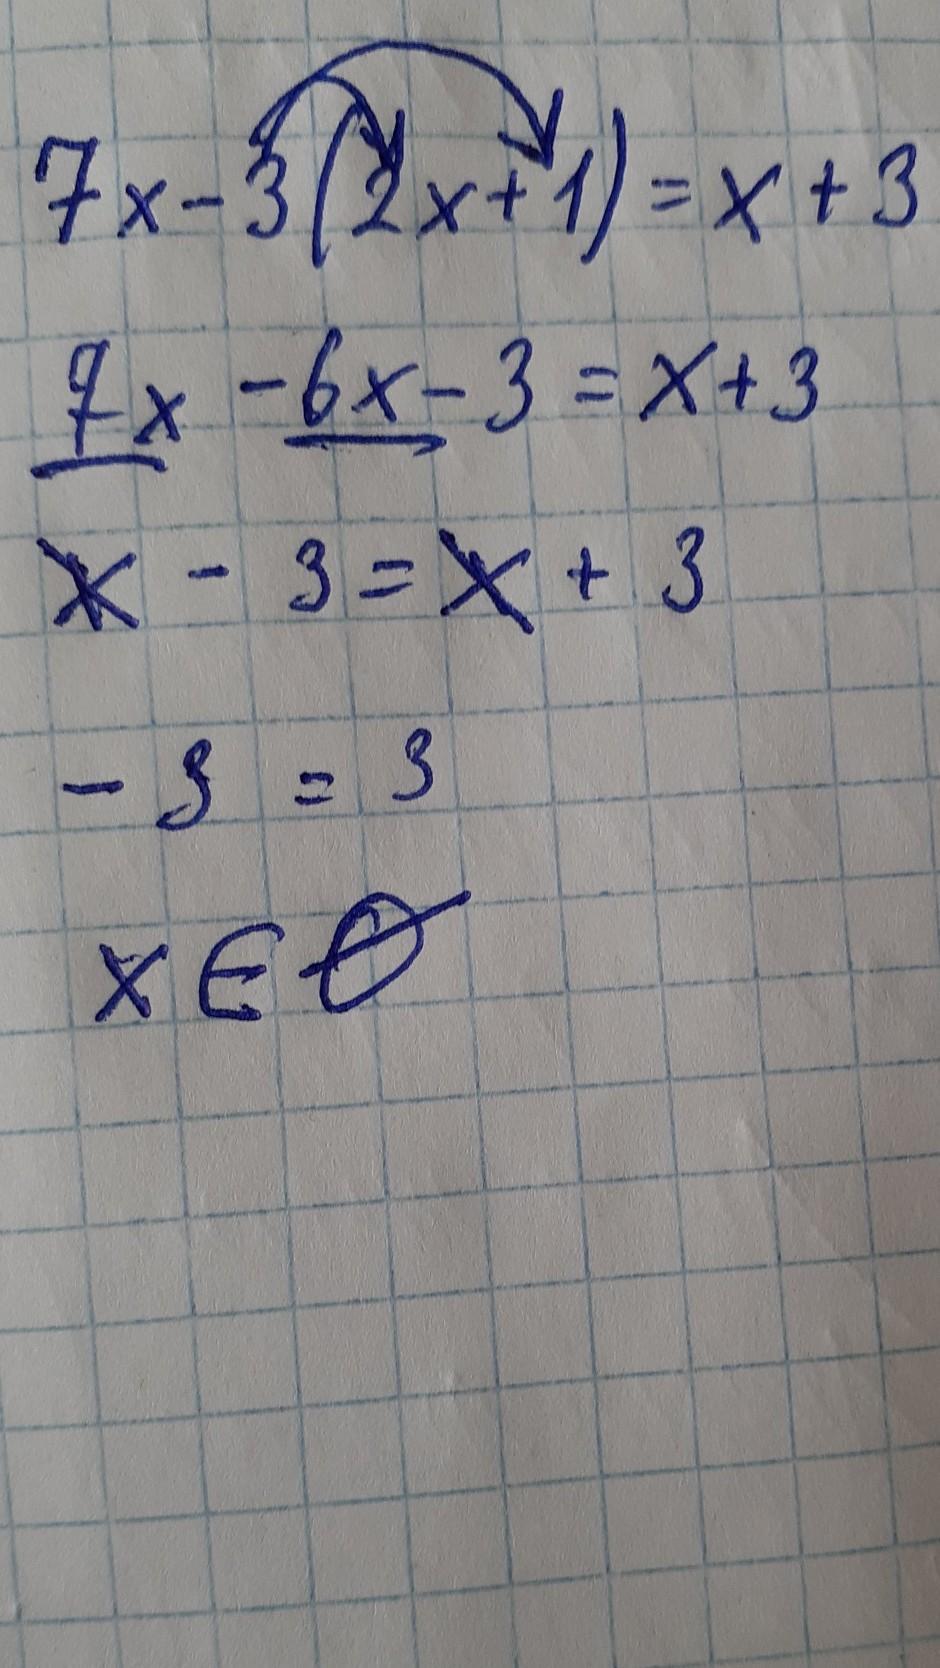 7x-3(2x+1)=x+3
7x-6x-3=x+3
x-3=x+3
-3=3
x∈∅